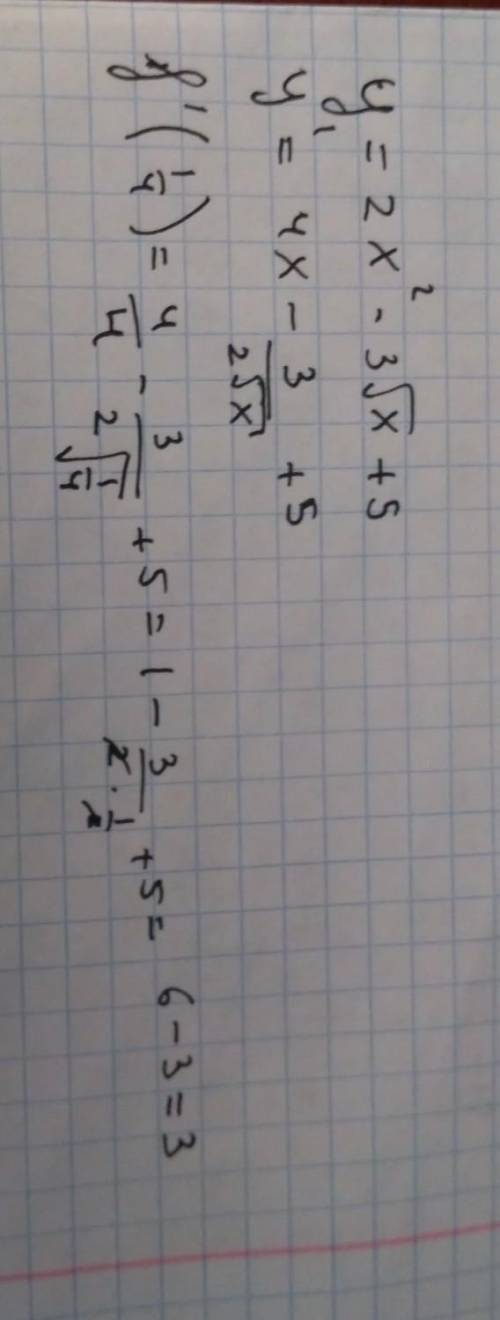 y = 2x² - 3√x + 5
y' = 4x - 3/(2√x) + 5
y'(1/4) = 4/4 - 3/(2√(1/4)) + 5 = 1 - 3/(2·1/2) + 5 = 6 - 3 = 3